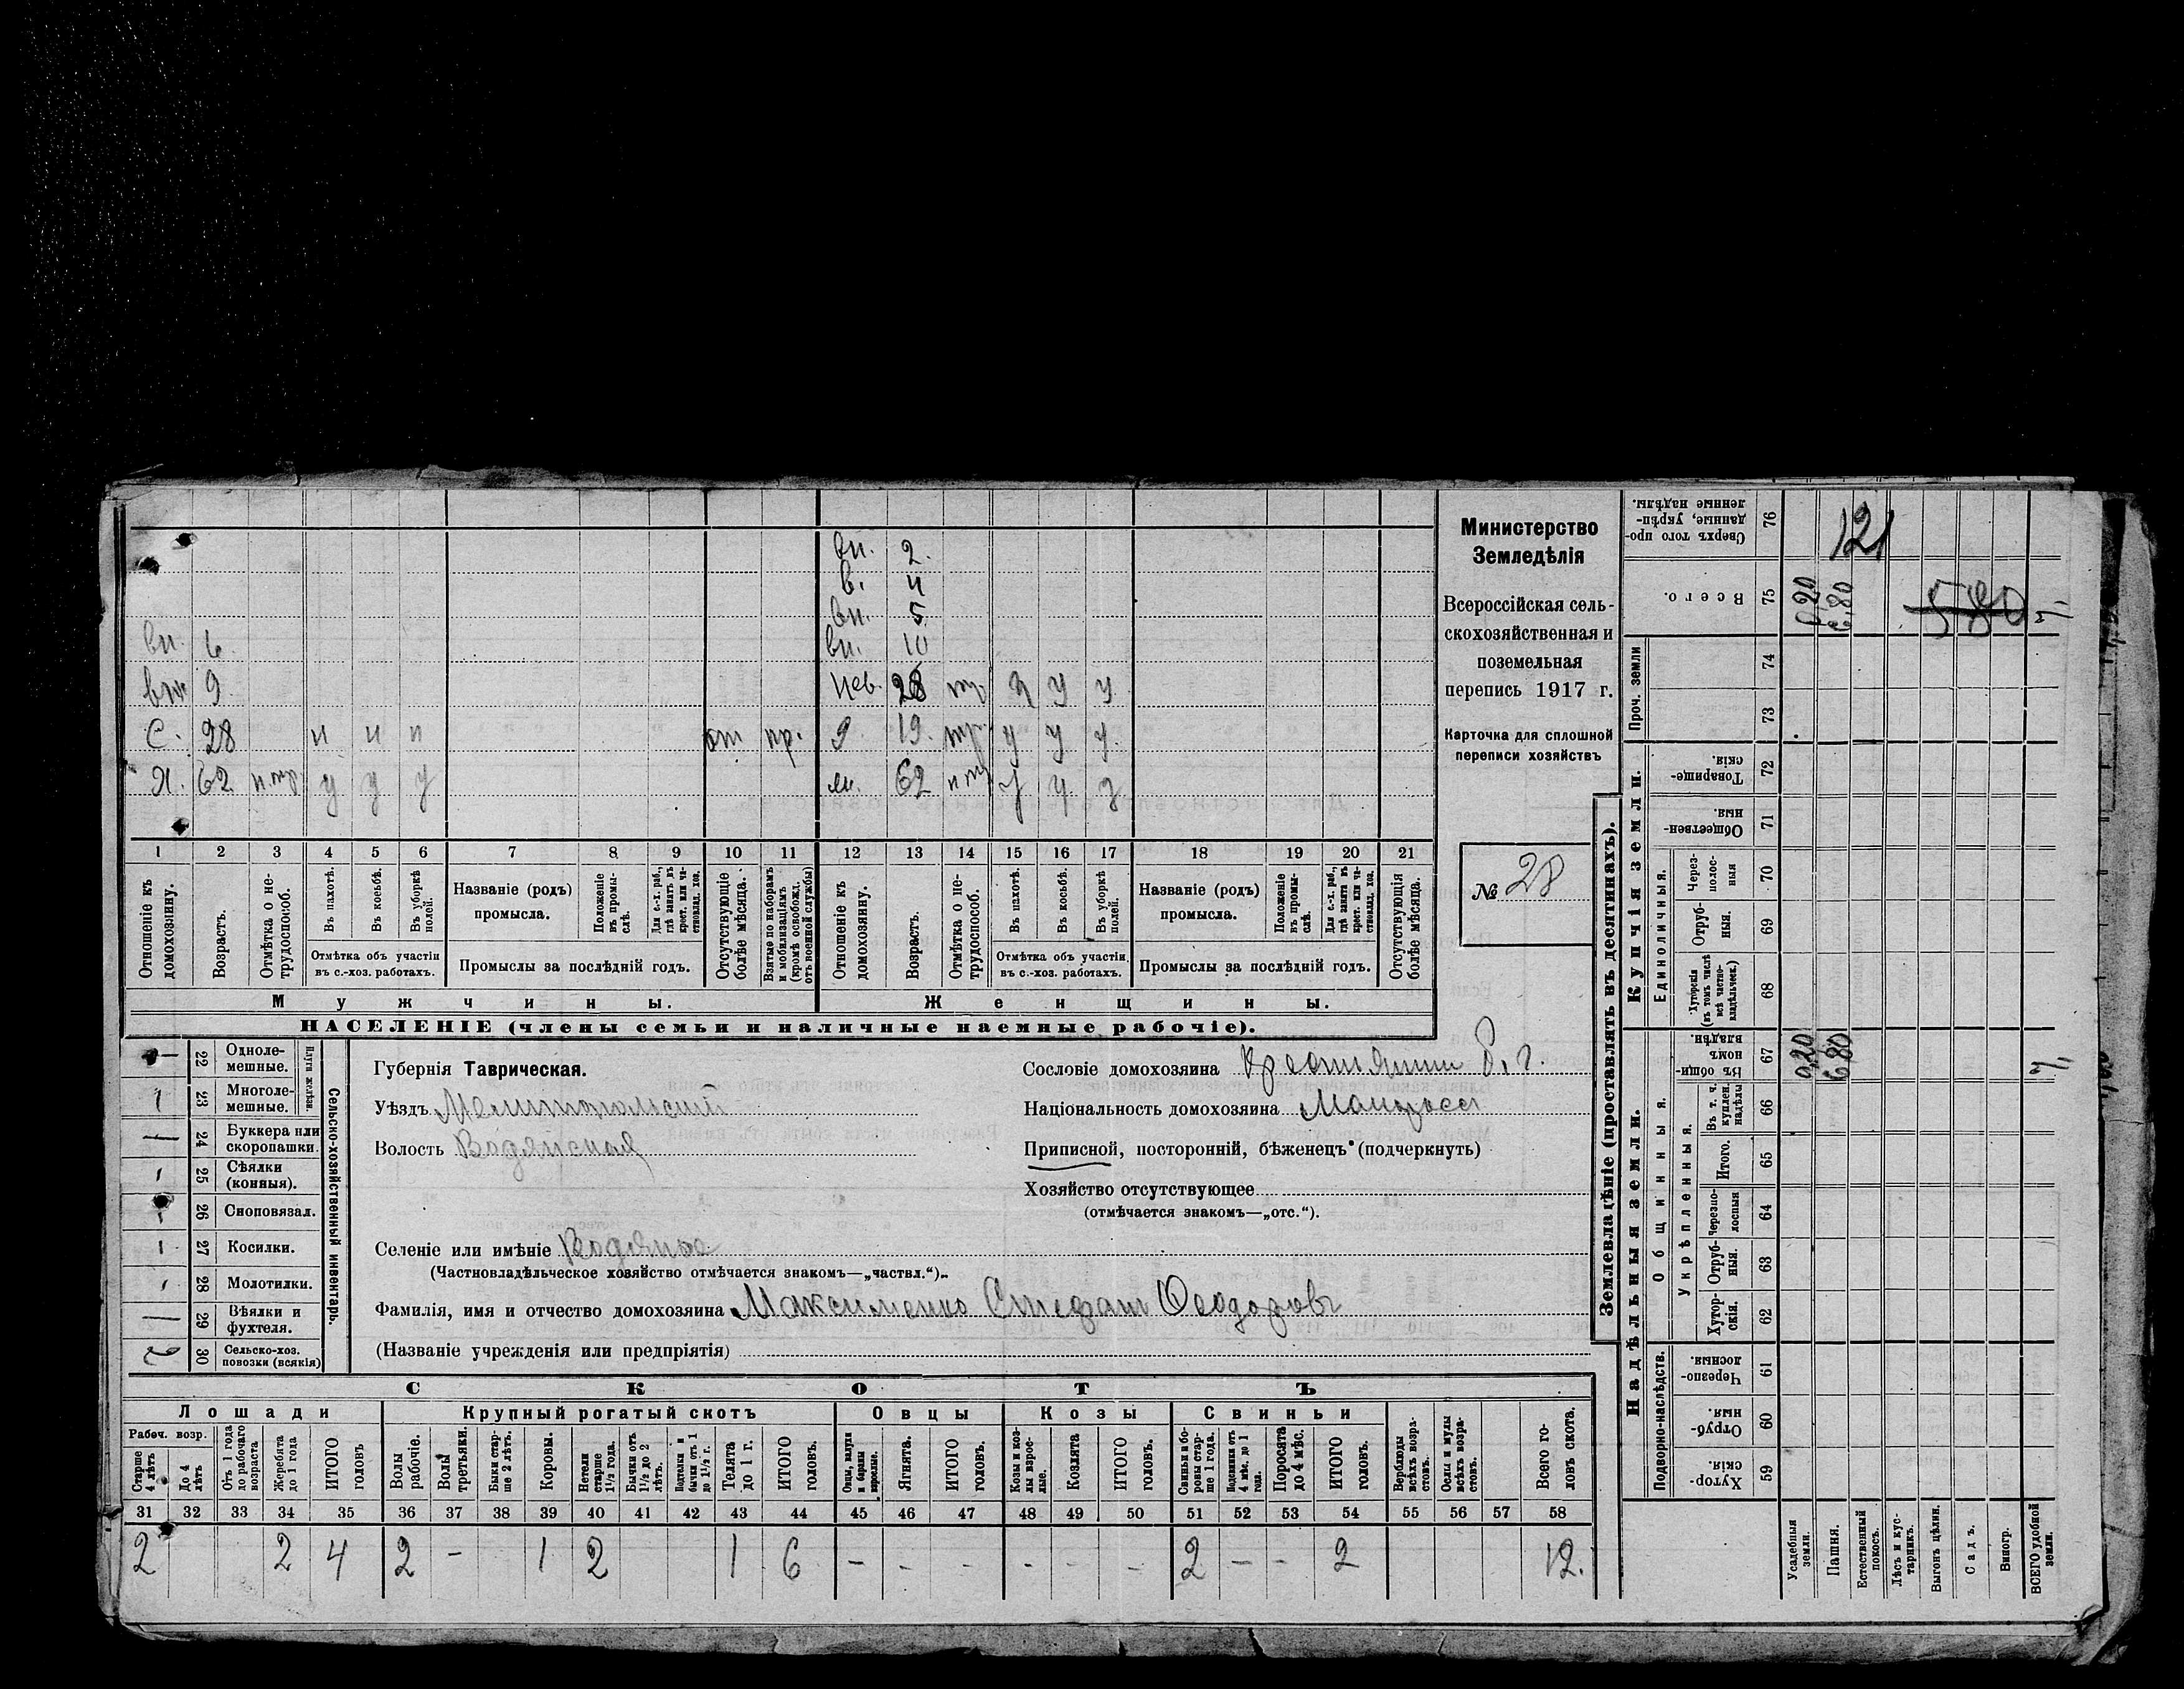 Министерство
Земледѣлія
Всероссійская сель-
скохозяйственная и
поземельная
перепись 1917 г.
Карточка для сплошной
переписи хозяйствъ
№ 28
вн. 2.
в. 4
вн. 5
вн. 6 вн. 10
вн 9 Нев. 28 тр. у у у
С. 28 н н н от пр. Д 19. тр. у у у.
Я. 62 н.тр. у у у м. 62 н тр у у у
1 2 3 4 5 6 7 8 9 10 11 12 13 14 15 16 17 18 19 20 21
Отношеніе къ домохозяину.
Возрастъ.
Отмѣтка о не-трудоспособ.
Въ пахотѣ.
Въ косьбѣ.
Въ уборкѣ полей.
Отмѣтка объ участіи въ с.-хоз. работахъ.
Названіе (родъ) промысла.
Положеніе въ промы-слѣ.
Для с.-х. раб., гдѣ занятъ въ крест. или ча-стновлад. хоз.
Промыслы за послѣдній годъ.
Отсутствующіе болѣе мѣсяца.
Взятые по наборамъ и мобилизаціямъ (кромѣ освобожд. отъ военной службы)
Отношеніе къ домохозяину.
Возрастъ.
Отмѣтка о не-трудоспособ.
Въ пахотѣ.
Въ косьбѣ.
Въ уборкѣ полей.
Отмѣтка объ участіи въ с.-хоз. работахъ.
Названіе (родъ) промысла.
Положеніе въ промы-слѣ.
Для с.-х. раб., гдѣ занята въ крест. или ча-стновлад. хоз.
Промыслы за послѣдній годъ.
Отсутствующія болѣе мѣсяца.
Мужчины. Женщины.
НАСЕЛЕНІЕ (члены семьи и наличные наемные рабочіе).
Сельско-хозяйственный инвентарь.
Плуги желѣзн.
— 22 Одноле-мешные.
1 23 Многоле-мешные.
— 24 Буккера или скоропашки.
1 25 Сѣялки (конныя).
26 Сноповязал.
1 27 Косилки.
1 28 Молотилки.
— 29 Вѣялки и фухтеля.
2 30 Сельско-хоз. повозки (всякія)
Губернія Таврическая.
Уѣздъ Мелитопольскій
Волость Водянская
Селеніе или имѣніе Водяное
(Частновладѣльческое хозяйство отмѣчается знакомъ—„частвл.“).
Фамилія, имя и отчество домохозяина Максименко Стефанъ Феодоровъ
(Названіе учрежденія или предпріятія)
Сословіе домохозяина Крестьянин б. г.
Національность домохозяина Малоросс
Приписной, посторонній, бѣженецъ (подчеркнуть)
Хозяйство отсутствующее
(отмѣчается знакомъ—„отс.“).
СКОТЪ
Лошади Крупный рогатый скотъ Овцы Козы Свиньи
Рабоч. возр.
Старше 4 лѣтъ
До 4 лѣтъ
Отъ 1 года до рабочаго возраста
Жеребята до 1 года
ИТОГО головъ
Волы рабочіе.
Волы третьяки.
Быки стар-ше 2 лѣтъ.
Коровы.
Нетели старше 1½ года.
Бычки отъ 1½ до 2 лѣтъ.
Подтелки и бычки отъ 1 до 1½ г.
Телята до 1 г.
ИТОГО головъ.
Овцы, валухи и бараны взрослые.
Ягнята.
ИТОГО головъ.
Козы и коз-лы взрос-лые.
Козлята
ИТОГО головъ.
Свиньи и бо-ровы стар-ше 1 года.
Подсвинки отъ 4 мѣс. до 1 года.
Поросята до 4 мѣс.
ИТОГО головъ.
Верблюды всѣхъ возра-стовъ.
Ослы и мулы всѣхъ возра-стовъ.
Всего го-ловъ скота.
31 32 33 34 35 36 37 38 39 40 41 42 43 44 45 46 47 48 49 50 51 52 53 54 55 56 57 58
2 2 4 2 - 1 2 1 6 - - - - - - 2 - - 2 12.
Землевладѣніе (проставлять въ десятинахъ).
Надѣльныя земли. Купчія земли. Проч. земли
Подворно-наслѣдств.
Общинныя.
Укрѣпленныя.
Единоличныя.
Хутор-скія. 59
Отруб-ныя. 60
Черезпо-лосныя. 61
Хутор-скія. 62
Отруб-ныя. 63
Черезпо-лосныя 64
Итого. 65
Въ т. ч. куплен. надѣлы 66
Въ общи-номъ владѣн. 67 0,20 6,80 7,
Хуторскія (въ томъ числѣ всѣ частно-владѣльческ.) 68
Отруб-ныя. 69
Через-полос-ныя 70
Обществен-ныя. 71
Товарище-скія 72
73
74
Всего. 75 0,20 6,80 580 7,
Сверхъ того про-данные, укрѣп-ленные надѣлы. 76
121
Усадебныя земли.
Пашня.
Естественный покосъ.
Лѣсъ и кус-тарникъ.
Выгонъ цѣлин.
Садъ.
Виногр.
ВСЕГО удобной земли.